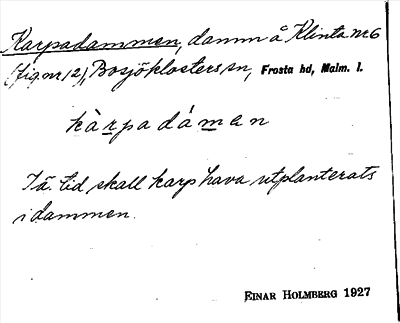 Karpadammen, damm å Klinta nr 6
(fig. nr 12), Bosjöklosters sn, Frosta hd, Malm. l.
kàrpadámen
I ä. tid skall karp hava utplanterats
i dammen.
EINAR HOLMBERG 1927